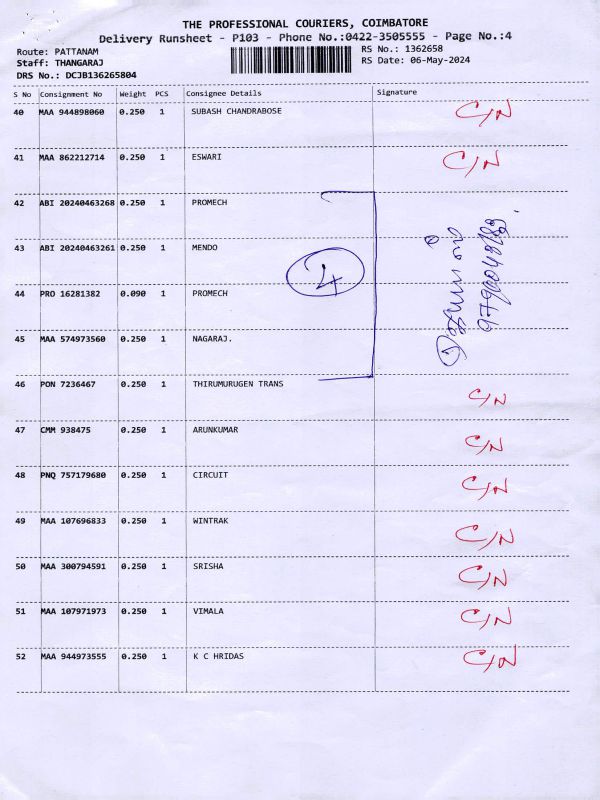 THE PROFESSIONAL COURIERS, COIMBATORE
Delivery Runsheet - P103 - Phone No.:0422-3505555 - Page No.:4
Route: PATTANAM RS No.: 1362658
Staff: THANGARAJ RS Date: 06-May-2024
DRS No.: DCJB136265804
S No Consignment No Weight PCS Consignee Details Signature
40 MAA 944898060 0.250 1 SUBASH CHANDRABOSE C/N
41 MAA 862212714 0.250 1 ESWARI C/N
42 ABI 20240463268 0.250 1 PROMECH
43 ABI 20240463261 0.250 1 MENDO
4
44 PRO 16281382 0.090 1 PROMECH
45 MAA 574973560 0.250 1 NAGARAJ.
46 PON 7236467 0.250 1 THIRUMURUGEN TRANS C/N
47 CMM 938475 0.250 1 ARUNKUMAR C/N
48 PNQ 757179680 0.250 1 CIRCUIT C/N
49 MAA 107696833 0.250 1 WINTRAK C/N
50 MAA 300794591 0.250 1 SRISHA C/N
51 MAA 107971973 0.250 1 VIMALA C/N
52 MAA 944973555 0.250 1 K C HRIDAS C/N